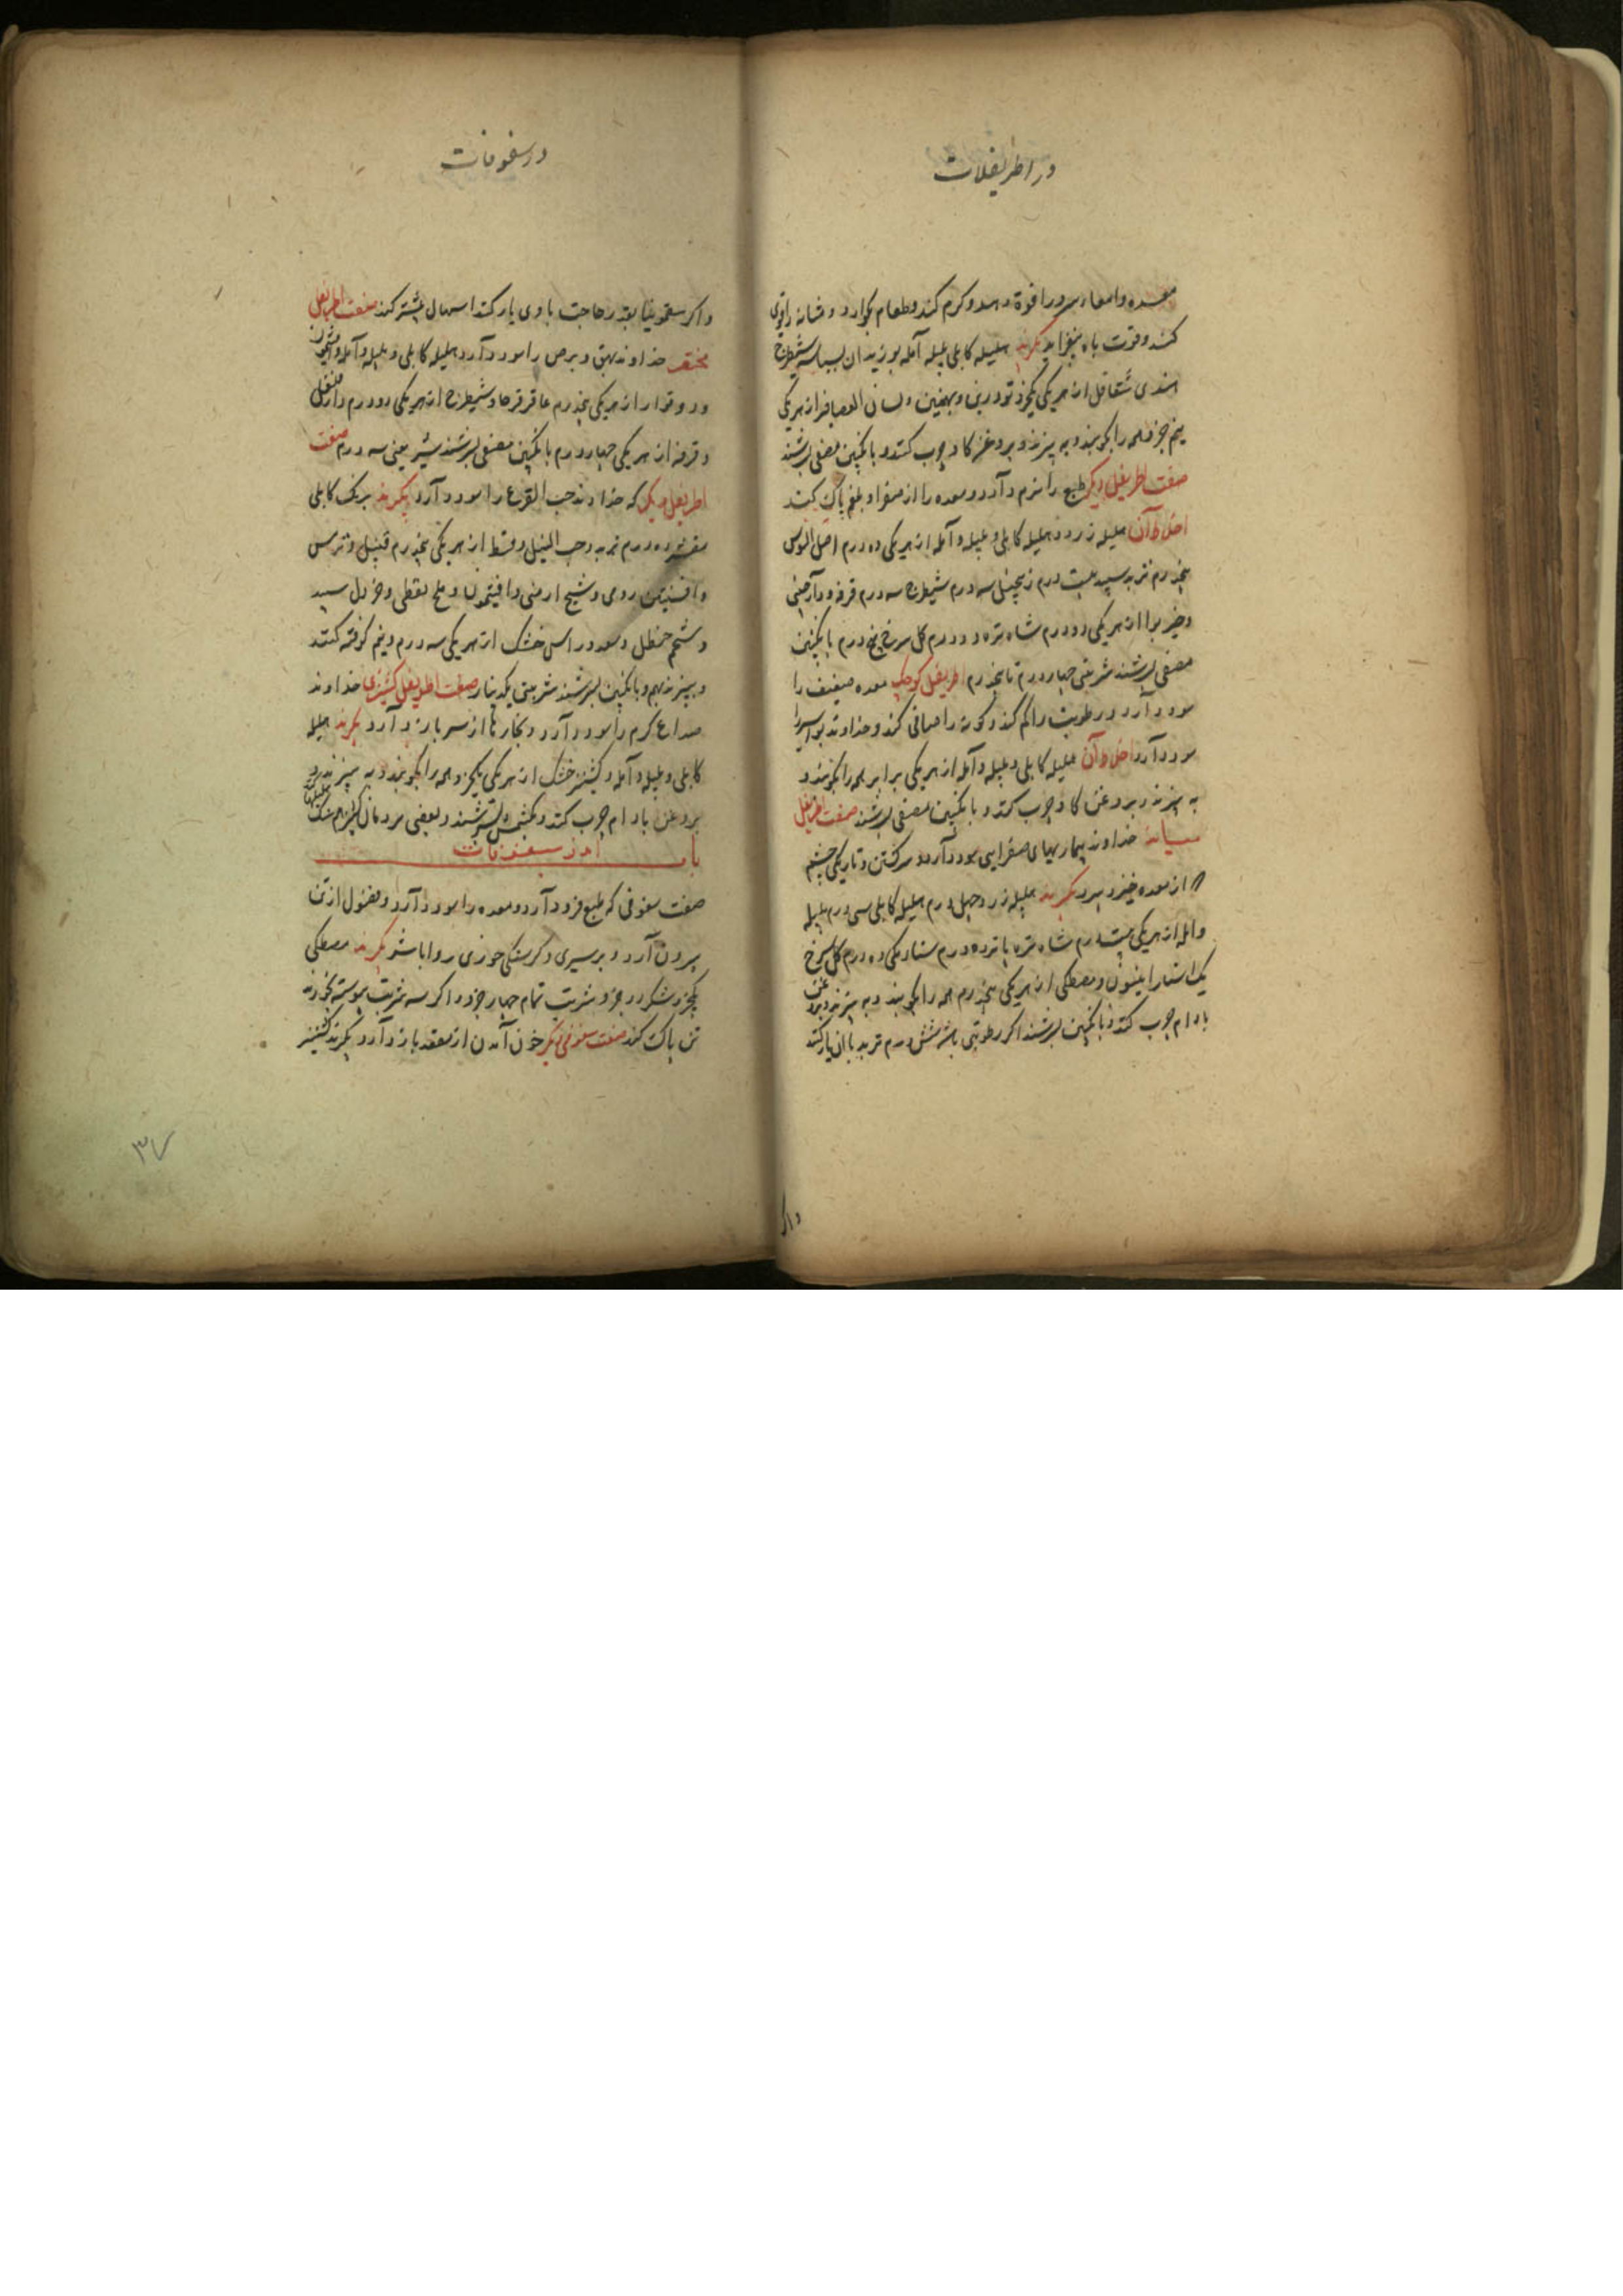 در اطریفلات
معده و امعا و سرد را قوة دهد و کرم کند و طعام بکوارد و مثانه را قوی
کند و قوت باه بیفزاید بکیرند هلیله کابلی بلیله آمله بوزیدان بسباسه شیطرج
هندی شقاقل از هر یکی یکجزو تودرین و بهمنین و لسان العصافیر از هر یکی
نیم جزو همه را بکوبند و به پیزند و بروغن کاو چرب کنند و بانکبین مصفی بسرشند
صفت اطریفل دیکر طبع را نرم دارد و معده را از صفرا و بلغم پاک کند
اخلاط آن هلیله زرد و هلیله کابلی و بلیله و آمله از هر یکی ده درم اصل السوس
پنجدرم تربد سپید بیست درم زنجبیل سه درم شیطرج سه درم قرفه و دارچینی
و خیربوا از هر یکی دو درم شاه تره دو درم کل سرخ پنج درم بانکبین
مصفی بسرشند شربتی چهار درم تا پنجدرم اطریفل کوچک معده ضعیف را
سود دارد و رطوبت را کم کند و کونه را صافی کند و خداوند بواسیر را
سود دارد اخلاط آن هلیله کابلی و بلیله و آمله از هر یکی برابر همه را بکوبند و
به پیزند و بروغن کاو چرب کنند و بانکبین مصفی بسرشند صفت اطریفل
میانه خداوند بیماریهای صفرایی سود دارد و سر کشتن و تاریکی چشم
که از معده خیزد ببرد بکیرند هلیله زرد چهل درم هلیله کابلی سی درم بلیله
و آمله از هر یکی بیست درم شاه تره پانزده درم سناء مکی ده درم کل سرخ
یک استار انیسون و مصطکی از هر یکی پنجدرم همه را بکوبند و به پیزند و بروغن
بادام چرب کنند و بانکبین بسرشند اکر رطوبتی باشد شش درم تربد با ان یار کنند
واکر
در سفوفات
واکر سقمونیا بقدر حاجت با وی یار کنند اسهال بیشتر کند صفت اطریفل
مختصر خداوند بهق و برص را سود دارد هلیله کابلی و بلیله و آمله و افتیمون
از هر یکی پنجدرم عاقرقرحا و شیطرج از هر یکی دو درم دارفلفل
و قرفه از هر یکی چهار درم بانکبین مصفی بسرشند شربتی سه درم صفت
اطریفل دیکر که خداوند حب القرع را سود دارد بکیرند برنک کابلی
مقشر ده درم تربد و حب النیل و قسط از هر یکی پنجدرم قنبیل و ترمس
و افسنتین رومی و شیح ارمنی و افتیمون و ملح نفطی و خردل سپید
و شحم حنظل و سعد و راسن خشک از هر یکی سه درم و نیم کوفته کنند
و ببیزند بهم و بانکبین بسرشند شربتی یکدینار صفت اطریفل کشنیزی خداوند
صداع کرم را سود دارد و بخارها از سر باز دارد بکیرند هلیله
کابلی و بلیله و آمله و کشنیز خشک از هر یکی یکجزو همه را بکوبند و به پیزند و
بروغن بادام چرب کنند و بسرشند و بعضی مردمان
باب اندر سفوفات
صفت سفوفی که طبع فرود آرد و معده را سود دارد و فضول از تن
بیرون آرد و بر سیری و کرسنکی خوری روا باشد بکیرند مصطکی
یکجزو شکر دو جزو شربت تمام چهار جزو و اکر سه شربت پیوسته بخورند
تن پاک کند صفت سفوفی دیکر خون آمدن از مقعد باز دارد بکیرند کشنیز
۳۷